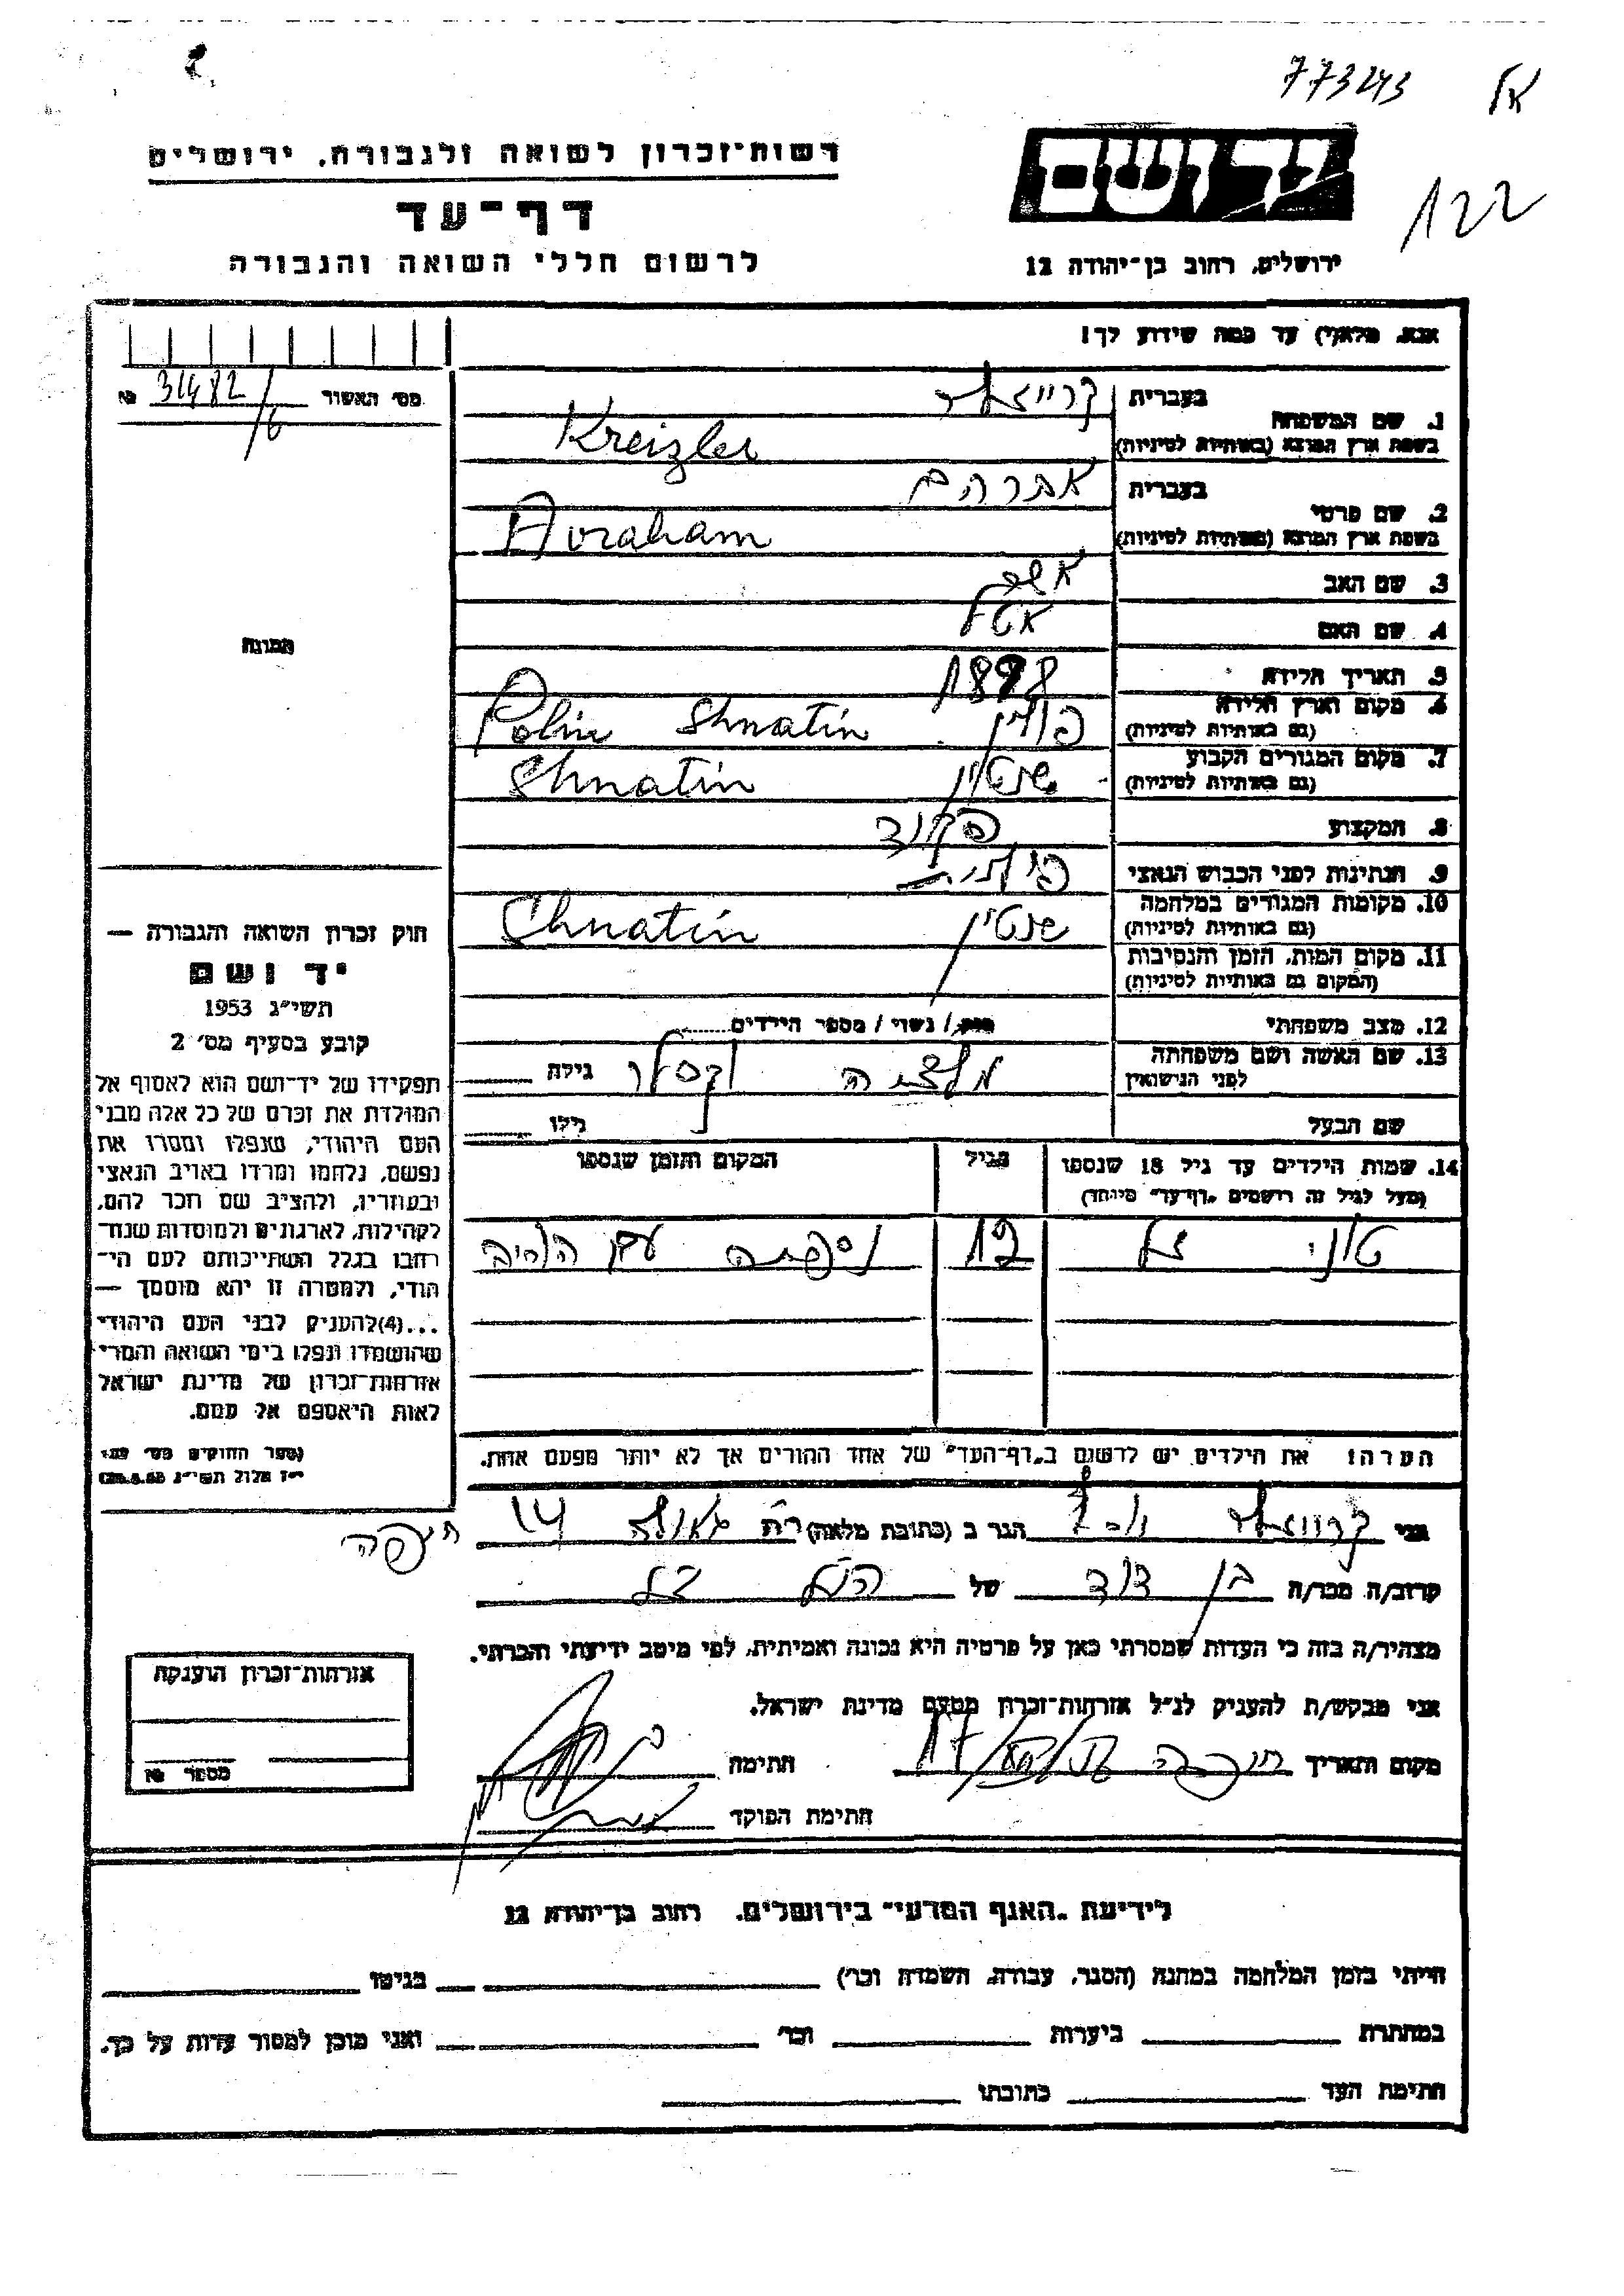 773243
122
יד ושם
ירושלים, רחוב בן-יהודה 12
רשות-זכרון לשואה ולגבורה, ירושלים
דף-עד
לרשום חללי השואה והגבורה
אנא, מלא(י) עד כמה שידוע לך!
מס׳ האשור 31482/6 מא
1. שם המשפחה
בעברית קרייזלר
בשפת ארץ המוצא (באותיות לטיניות) Kreizler
2. שם פרטי
בעברית אברהם
בשפת ארץ המוצא (באותיות לטיניות) Avraham
3. שם האב אשר
4. שם האם אטל
5. תאריך הלידה 1898
6. מקום וארץ הלידה
(גם באותיות לטיניות) פולין Polin Shnatin
7. מקום המגורים הקבוע
(גם באותיות לטיניות) שנטין Shnatin
8. המקצוע פקיד
9. הנתינות לפני הכבוש הנאצי פולנית
10. מקומות המגורים במלחמה
(גם באותיות לטיניות) שנטין Shnatin
11. מקום המות, הזמן והנסיבות
(המקום גם באותיות לטיניות)
12. מצב משפחתי
רווק / נשוי / מספר הילדים
13. שם האשה ושם משפחתה
לפני הנישואין
גילה
שם הבעל גילו
התמונה
14. שמות הילדים עד גיל 18 שנספו
(מעל לגיל זה רושמים „דף-עד״ מיוחד)
בגיל
המקום והזמן שנספו
טוני ז"ל 12 נספתה עם הוריה
הערה: את הילדים יש לרשום ב„דף-העד״ של אחד ההורים אך לא יותר מפעם אחת.
חוק זכרון השואה והגבורה —
יד ושם
תשי״ג 1953
קובע בסעיף מס׳ 2
תפקידו של יד-ושם הוא לאסוף אל
המולדת את זכרם של כל אלה מבני
העם היהודי, שנפלו ומסרו את
נפשם, נלחמו ומרדו באויב הנאצי
ובעוזריו, ולהציב שם וזכר להם,
לקהילות, לארגונים ולמוסדות שנח-
רבו בגלל השתייכותם לעם הי-
הודי, ולמטרה זו יהא מוסמך —
...(4)להעניק לבני העם היהודי
שהושמדו ונפלו בימי השואה והמרי
אזרחות-זכרון של מדינת ישראל
לאות היאספם אל עמם.
אני קרייזלר הגר ב (כתובת מלאה) רח גאולה 14 חיפה
קרוב/ה מכר/ה בן דוד של הנ"ל ז"ל
מצהיר/ה בזה כי העדות שמסרתי כאן על פרטיה היא נכונה ואמיתית, לפי מיטב ידיעתי והכרתי.
אני מבקש/ת להעניק לנ״ל אזרחות-זכרון מטעם מדינת ישראל.
מקום ותאריך חיפה חתימה
חתימת הפוקד
אזרחות-זכרון הוענקה
מספר מא
לידיעת „האגף המדעי״ בירושלים, רחוב בן-יהודה 12
הייתי בזמן המלחמה במחנה (הסגר, עבודה, השמדה וכר׳) בגיטו
במחתרת ביערות וכר׳ ואני מוכן למסור עדות על כך.
חתימת העד כתובתו